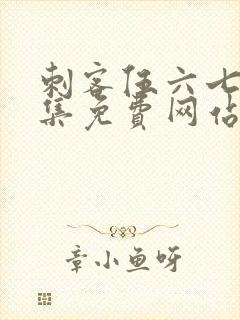 刺客伍六七
集免费网站
章小鱼呀